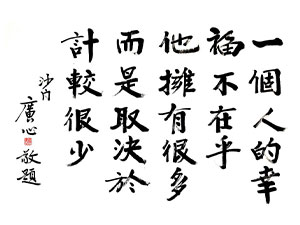 一個人的幸
福不在乎
他擁有很多
而是取決於
計較很少
沙門
廣心敬題